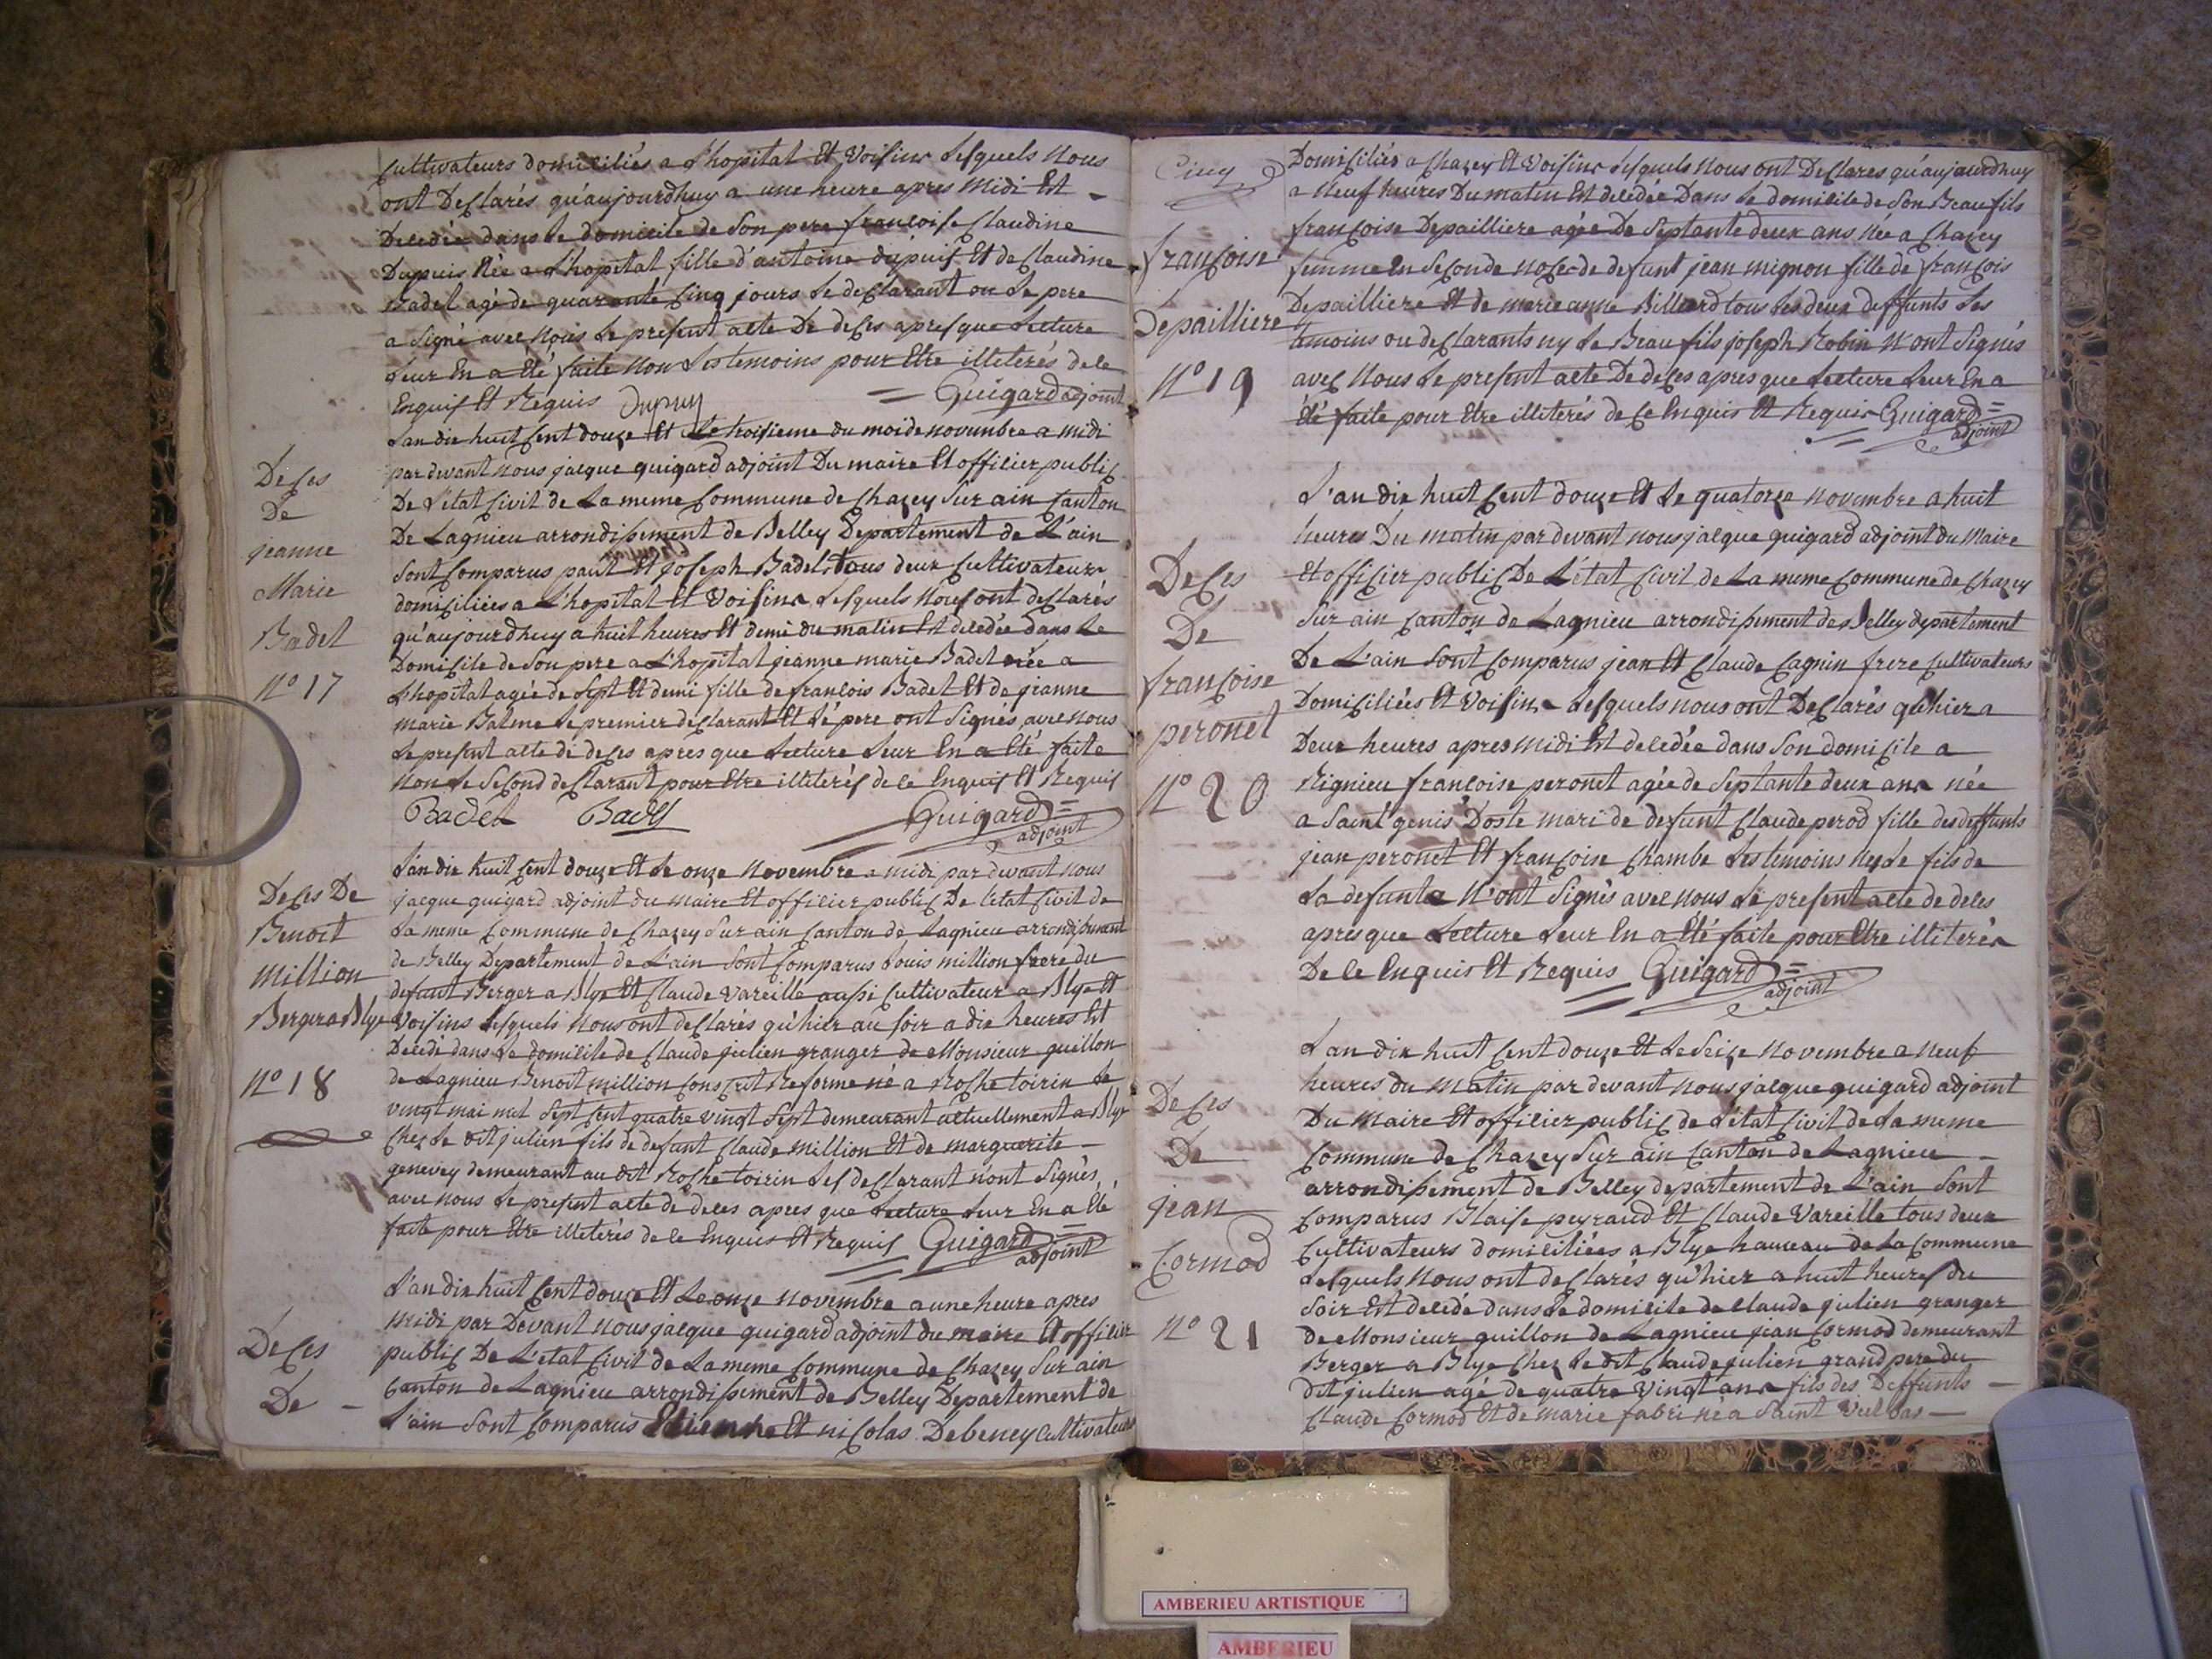 Cultivateurs domiciliés a L'hopital Et Voisins Lesquels Nous
ont Declarés qu'aujourdhuy a une heure apres Midi Est
Decedée dans Le domicile de Son pere francoise Claudine
Dupuis Née a L'hopital fille d'antoine dupuis Et de Claudine
Badel agé de quarante Cinq jours Le declarant ou Le pere
a Signé avec Nous Le present acte De deces apres que Lecture
Leur En a Eté faite Non Les temoins pour Etre illiterés de ce
Enquis Et Requis Dupuy Guigard adjoint
Deces
De
jeanne
Marie
Badel
N° 17
L'an dix huit Cent douze Et Le troisieme du moi de novembre a midi
par devant nous jacque guigard adjoint Du maire Et officier public
De L'état Civil de La meme Commune de Chazey Sur ain Canton
De Lagnieu arrondissement de Belley Departement de L'ain
Sont Comparus paul Et joseph Badel tous deux Cultivateurs
domiciliées a L'hopital Et Voisins Lesquels Nous ont declarés
qu'aujourdhuy a huit heures Et demi du matin Est decedée dans Le
Domicile de Son pere a L'hopital jeanne marie Badel née a
L'hopital agée de Sept Et demi fille de francois Badel Et de jeanne
marie Balme Le premier declarant Et Le pere ont Signés avec nous
Le present acte de deces apres que Lecture Leur En a Eté faite
Non Le Second declarant pour Etre illiterés de ce Enquis Et Requis
Badel Badel Guigard adjoint
Deces De
Benoit
Million
Berger a Blye
N° 18
L'an dix huit Cent douze Et Le onze Novembre a midi par devant nous
jacque guigard adjoint du maire Et officier public De l'état Civil de
La meme Commune de Chazey Sur ain Canton de Lagnieu arrondissement
de Belley Departement de L'ain Sont Comparus Louis million frere du
defunt Berger a Blye Et Claude Vareille aussi Cultivateur a Blye Et
Voisins Lesquels Nous ont declarés qu'hier au Soir a dix heures Est
Decedé dans Le domicile de Claude julien granger de Monsieur guillon
de Lagnieu Benoit million Conscrit Reformé né a Roche toirin Le
vingt mai mil Sept Cent quatre vingt Sept demeurant actuellement a Blye
Chez Le dit julien fils de defunt Claude million Et de marguerite
genevey demeurant au dit Roche toirin Les declarant n'ont Signés
avec nous Le present acte de deces apres que Lecture Leur En a Eté
faite pour Etre illiterés de ce Enquis Et Requis Guigard adjoint
Deces
De
L'an dix huit Cent douze Et Le onze novembre a une heure apres
Midi par Devant nous jacque guigard adjoint du maire Et officier
public De L'etat Civil de La meme Commune de Chazey Sur ain
Canton de Lagnieu arrondissement de Belley Departement de
L'ain Sont Comparus Etienne Et nicolas Debeney Cultivateurs
francoise
Depailliere
N° 19
Domiciliés a Chazey Et Voisins Lesquels Nous ont Declarés qu'aujourdhuy
a Neuf heures Du matin Est decedée Dans Le domicile de Son Beau fils
francoise Depailliere agée De Septante deux ans Née a Chazey
femme En Seconde noces de defunt jean mignon fille de francois
Depailliere Et de marie anne Billiard tous Les deux deffunts Les
temoins ou declarants ny Le Beau fils joseph Robin N'ont Signés
avec Nous Le present acte De deces apres que Lecture Leur En a
Eté faite pour Etre illiterés de Ce Enquis Et Requis Guigard
adjoint
Deces
De
francoise
peronet
N° 20
L'an dix huit Cent douze Et Le quatorze novembre a huit
heures Du matin par devant nous jacque guigard adjoint du Maire
Et officier public De L'état Civil de La meme Commune de Chazey
Sur ain Canton de Lagnieu arrondissement de Belley departement
De L'ain Sont Comparus jean Et Claude Cagnin frere Cultivateurs
Domiciliées Et Voisins Lesquels nous ont Declarés qu'hier a
Deux heures apres Midi Est decedée dans Son domicile a
Rignieu francoise peronet agée de Septante deux ans née
a Saint genis D'oste mari de defunt Claude perod fille des deffunts
jean peronet Et francoise Chambe Les temoins Ny Le fils de
La defunte N'ont Signés avec nous Le present acte de deces
apres que Lecture Leur En a Eté faite pour Etre illiterés
De Ce Enquis Et Requis Guigard
adjoint
Deces
De
jean
Cormod
N° 21
L'an dix huit Cent douze Et Le Seize Novembre a neuf
heures du Matin par devant nous jacque guigard adjoint
Du Maire Et officier public de L'état Civil de La meme
Commune de Chazey Sur ain Canton de Lagnieu
arrondissement de Belley departement de L'ain Sont
Comparus Blaise peyraud Et Claude Vareille tous deux
Cultivateurs domiciliées a Blye hameau de La Commune
Lesquels Nous ont declarés qu'hier a huit heures du
Soir Est decedé dans Le domicile de Claude julien granger
De Monsieur guillon de Lagnieu jean Cormod demeurant
Berger a Blye Chez Le dit Claude julien grand pere du
Dit julien agé de quatre Vingt ans fils des Deffunts
Claude Cormod Et de marie fabri né a Saint Vulbas
AMBERIEU ARTISTIQUE
AMBERIEU